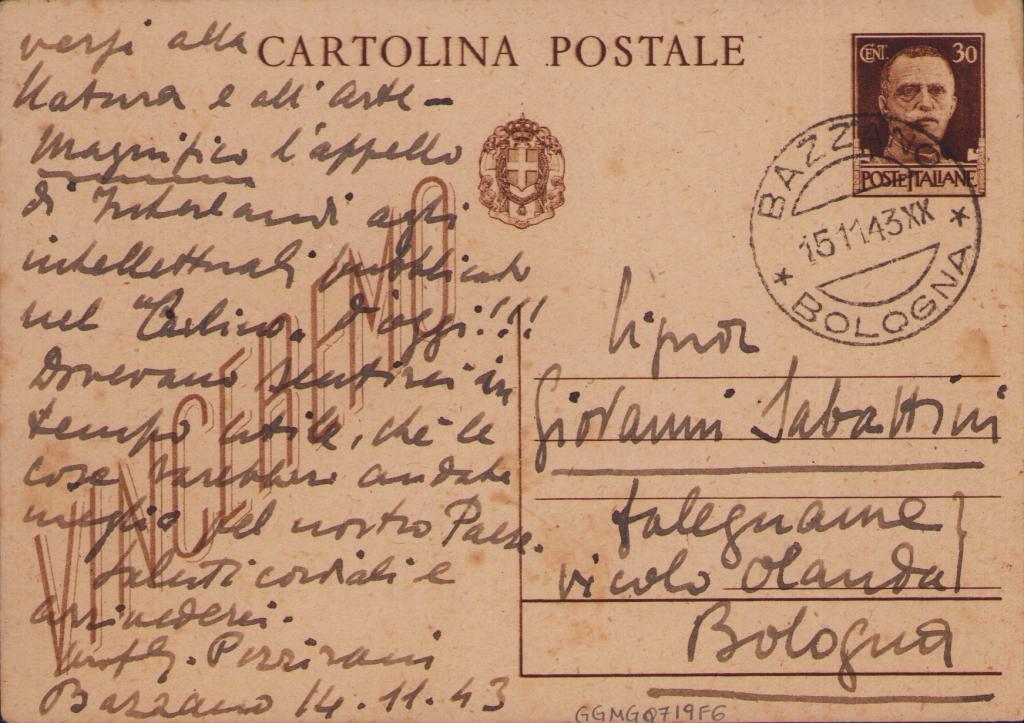 versi alla
Natura e all'Arte –
Magnifico l'appello
di Interlandi agli
intellettuali pubblicato
nel "Carlino" d'oggi!!!
Dovevano sentirci in
tempo utile, chè le
cose sarebbero andate
meglio pel nostro Paese.
Saluti cordiali e
arrivederci.
Pizzirani
Bazzano 14.11.43
CARTOLINA POSTALE
VINCEREMO
CENT. 30
POSTE ITALIANE
BAZZANO
15 11 43 XX
* BOLOGNA *
Signor
Giovanni Sabattini
falegname
vicolo Olanda
Bologna
GGMGQ719F6